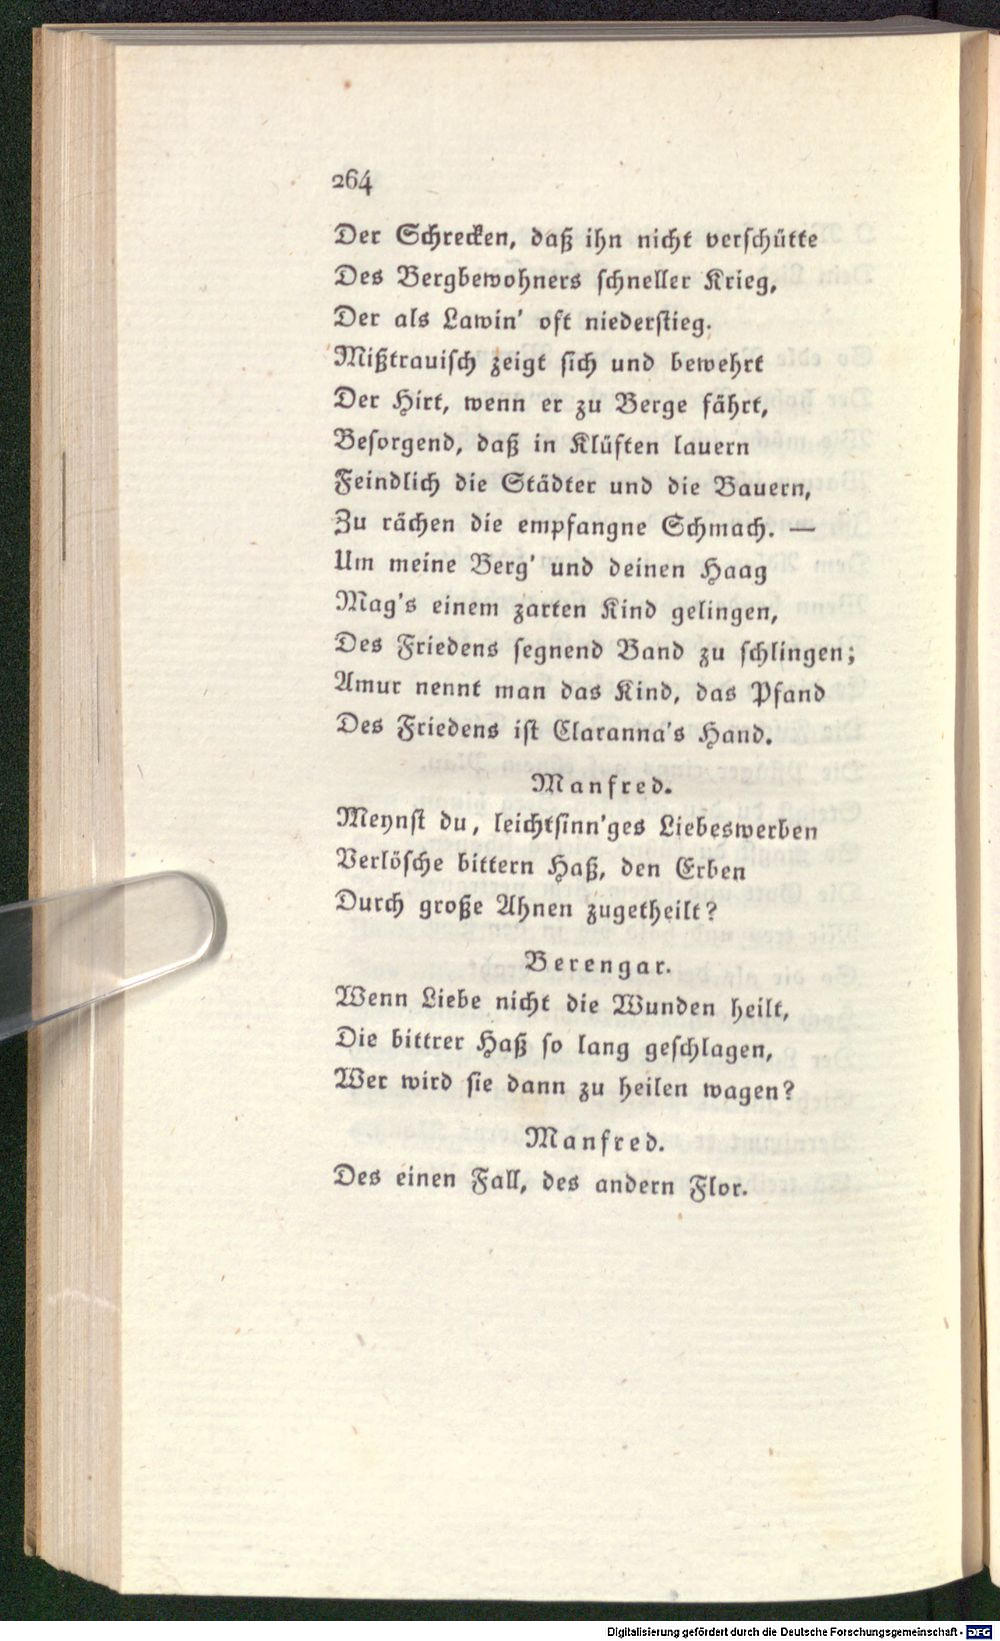 264
Der Schrecken, daß ihn nicht verschütte
Des Bergbewohners schneller Krieg,
Der als Lawin' oft niederstieg.
Mißtrauisch zeigt sich und bewehrt
Der Hirt, wenn er zu Berge fährt,
Besorgend, daß in Klüften lauern
Feindlich die Städter und die Bauern,
Zu rächen die empfangne Schmach. —
Um meine Berg' und deinen Haag
Mag's einem zarten Kind gelingen,
Des Friedens segnend Band zu schlingen;
Amur nennt man das Kind, das Pfand
Des Friedens ist Claranna's Hand.
Manfred.
Meynst du, leichtsinn'ges Liebeswerben
Verlösche bittern Haß, den Erben
Durch große Ahnen zugetheilt?
Berengar.
Wenn Liebe nicht die Wunden heilt,
Die bittrer Haß so lang geschlagen,
Wer wird sie dann zu heilen wagen?
Manfred.
Des einen Fall, des andern Flor.
Digitalisierung gefördert durch die Deutsche Forschungsgemeinschaft - DFG